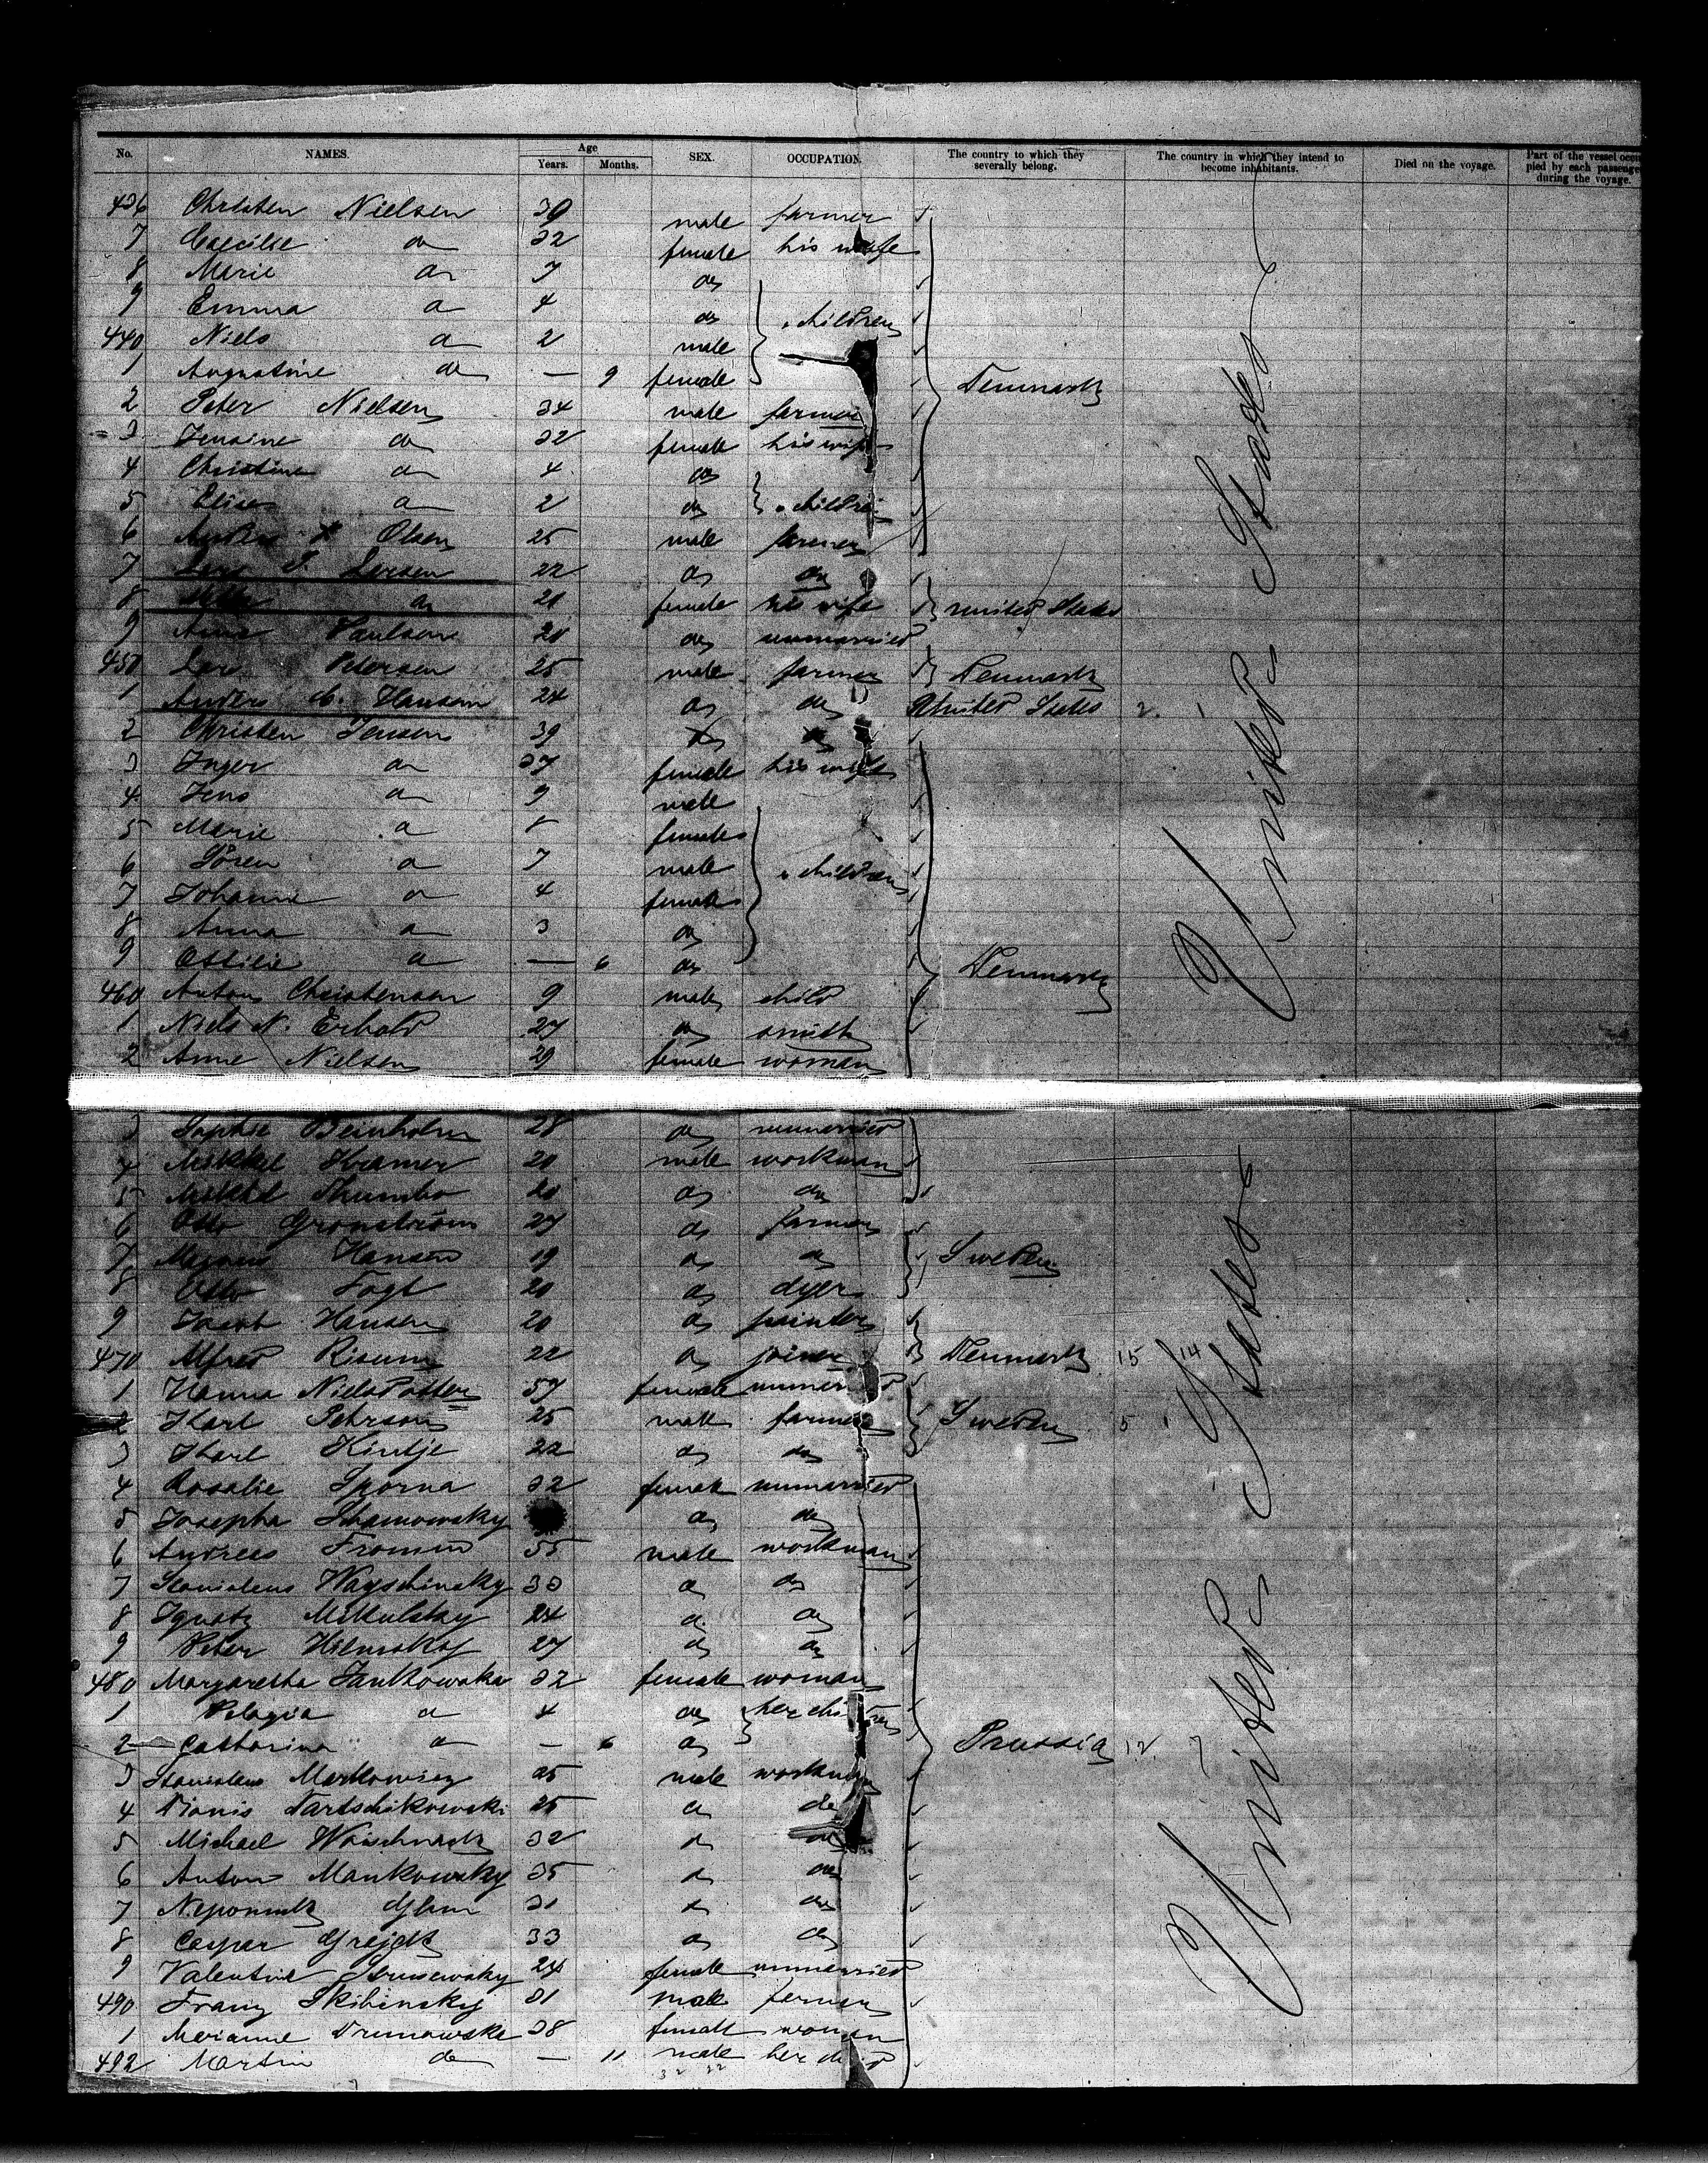 No. NAMES. Age Years. Months. SEX. OCCUPATION. The country to which they severally belong. The country in which they intend to become inhabitants. Died on the voyage. Part of the vessel occupied by each passenger during the voyage.
436 Christen Nielsen 39 male farmer
7 Caecilie do 32 female his wife
8 Marie do 7 do
9 Emma do 4 do children
440 Niels do 2 male
1 Augustine do — 9 female Denmark
2 Peter Nielsen 34 male farmer
3 Jensine do 32 female his wife
4 Christine do 4 do
5 Elise do 2 do children
6 Olsen 25 male farmer
7 Larsen 22 do do
8 do 21 female his wife United States
9 Anna Paulsen 20 do unmarried
450 Petersen 25 male farmer Denmark
1 Anders C. Hansen 24 do do United States 2. 1
2 Christen Jensen 39 do do
3 Inger do 37 female his wife
4 Jens do 9 male
5 Marie do 8 female
6 Sören do 7 male children
7 Johanne do 4 female
8 Anna do 3 do
9 Ottilie do — 6 do Denmark
460 Anton Christensen 9 male child
1 Niels N. 27 do smith
2 Anne Nielsen 29 female woman
United States
3 Sophie Beinholm 28 do unmarried
4 Mikkel Kramer 20 male workman
5 Mikkel 20 do do
6 Otto Gronstrom 27 do farmer
7 Magnus Hansen 19 do do Sweden
8 Otto Fogt 20 do dyer
9 Jacob Hansen 20 do painter
470 Alfred Risum 22 do joiner Denmark 15 14
1 Hanna 57 female unmarried
2 Karl Pehrson 25 male farmer Sweden 5 1
3 Karl Kintje 22 do do
4 Rosalie Sporna 32 female unmarried
5 Josepha do do
6 Andreas Fromm 55 male workman
7 Stanislaus Wayschinsky 33 do do
8 Ignatz Mikulsky 24 do do
9 Peter 27 do do
480 Margaretha Jankowska 32 female woman
1 Pelagia do 4 do her children
2 Catharina do — 6 do Prussia 12. 7
3 Stanislaus Markowicz 25 male workman
4 25 do do
5 Michael 32 do do
6 Anton Mankowsky 35 do do
7 31 do do
8 Casper 33 do do
9 Valentine 24 female unmarried
490 Franz Skibinsky 31 male farmer
1 Marianne 38 female woman
492 Martin do — 11 male her child
United States